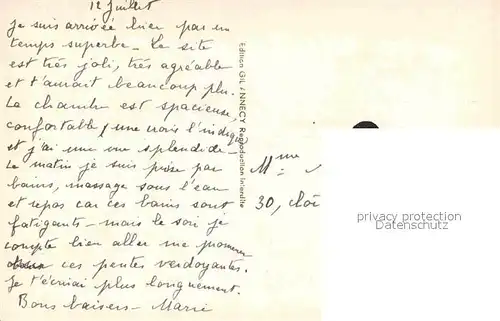 12 Juillet
Je suis arrivée bien par un
temps superbe - Le site
est très joli, très agréable
et t'aurait beaucoup plu.
La chambre est spacieuse,
confortable, une croix l'indique
et j'ai une vue splendide -
Le matin je suis prise par
bains, massage sous l'eau
et repos car ces bains sont
fatigants - mais le soir je
compte bien aller me promener
ces pentes verdoyantes.
Je t'écrirai plus longuement.
Bons baisers - Marie
Edition GIL ANNECY Reproduction Interdite
Mme
30,
privacy protection
Datenschutz